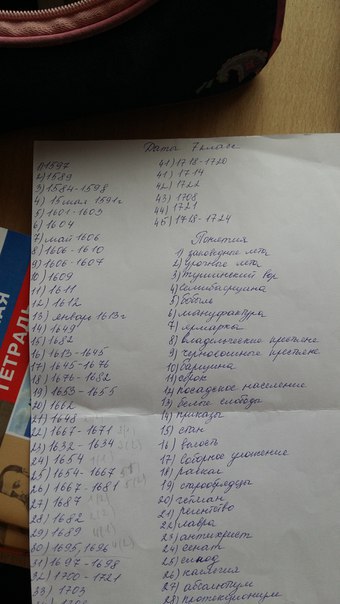 Даты 7 класс
1) 1597
2) 1589
3) 1584-1598
4) 15 мая 1591г
5) 1601-1603
6) 1604
7) май 1606
8) 1606-1610
9) 1606-1607
10) 1609
11) 1611
12) 1612
13) январь 1613г
14) 1649
15) 1682
16) 1613-1645
17) 1645-1676
18) 1676-1682
19) 1653-1655
20) 1662
21) 1648
22) 1667-1671
23) 1632-1634
24) 1654
25) 1654-1667
26) 1667-1681
27) 1687
28) 1682
29) 1689
30) 1695, 1696
31) 1697-1698
32) 1700-1721
33) 1703
41) 1718-1720
41) 1714
42) 1722
43) 1708
44) 1721
45) 1718-1724
Понятия
1) заповедные лета
2) урочные лета
3) тушинский вор
4) семибоярщина
5) бобыль
6) мануфактура
7) ярмарки
8) владельческие крестьяне
9) черносошные крестьяне
10) барщина
11) оброк
12) посадское население
13) белые слободы
14) приказы
15) стан
16) волость
17) соборное уложение
18) раскол
19) старообрядцы
20) гетман
21) регентство
22) лавра
23) антихрист
24) сенат
25) синод
26) коллегия
27) абсолютизм
28) протекционизм
ТЕТРАДЬ